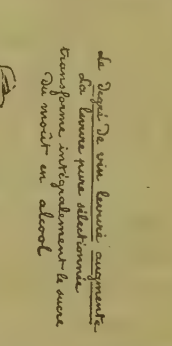 Le Degré de vin levuré augmente
La levure pure sélectionnée
transforme intégralement le sucre
du moût en alcool